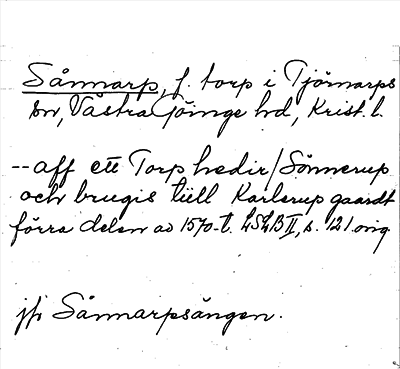 Sånnarp, f. torp i Tjörnarps
sn, Västra Göinge hd, Krist. l.
-- aff ett Torp hedir/Sönnerup
och brugis tiill Karlerup gaardt
förra delen av 1570-t. LSLB II, s. 121. orig
jfr Sånnarpsängen.